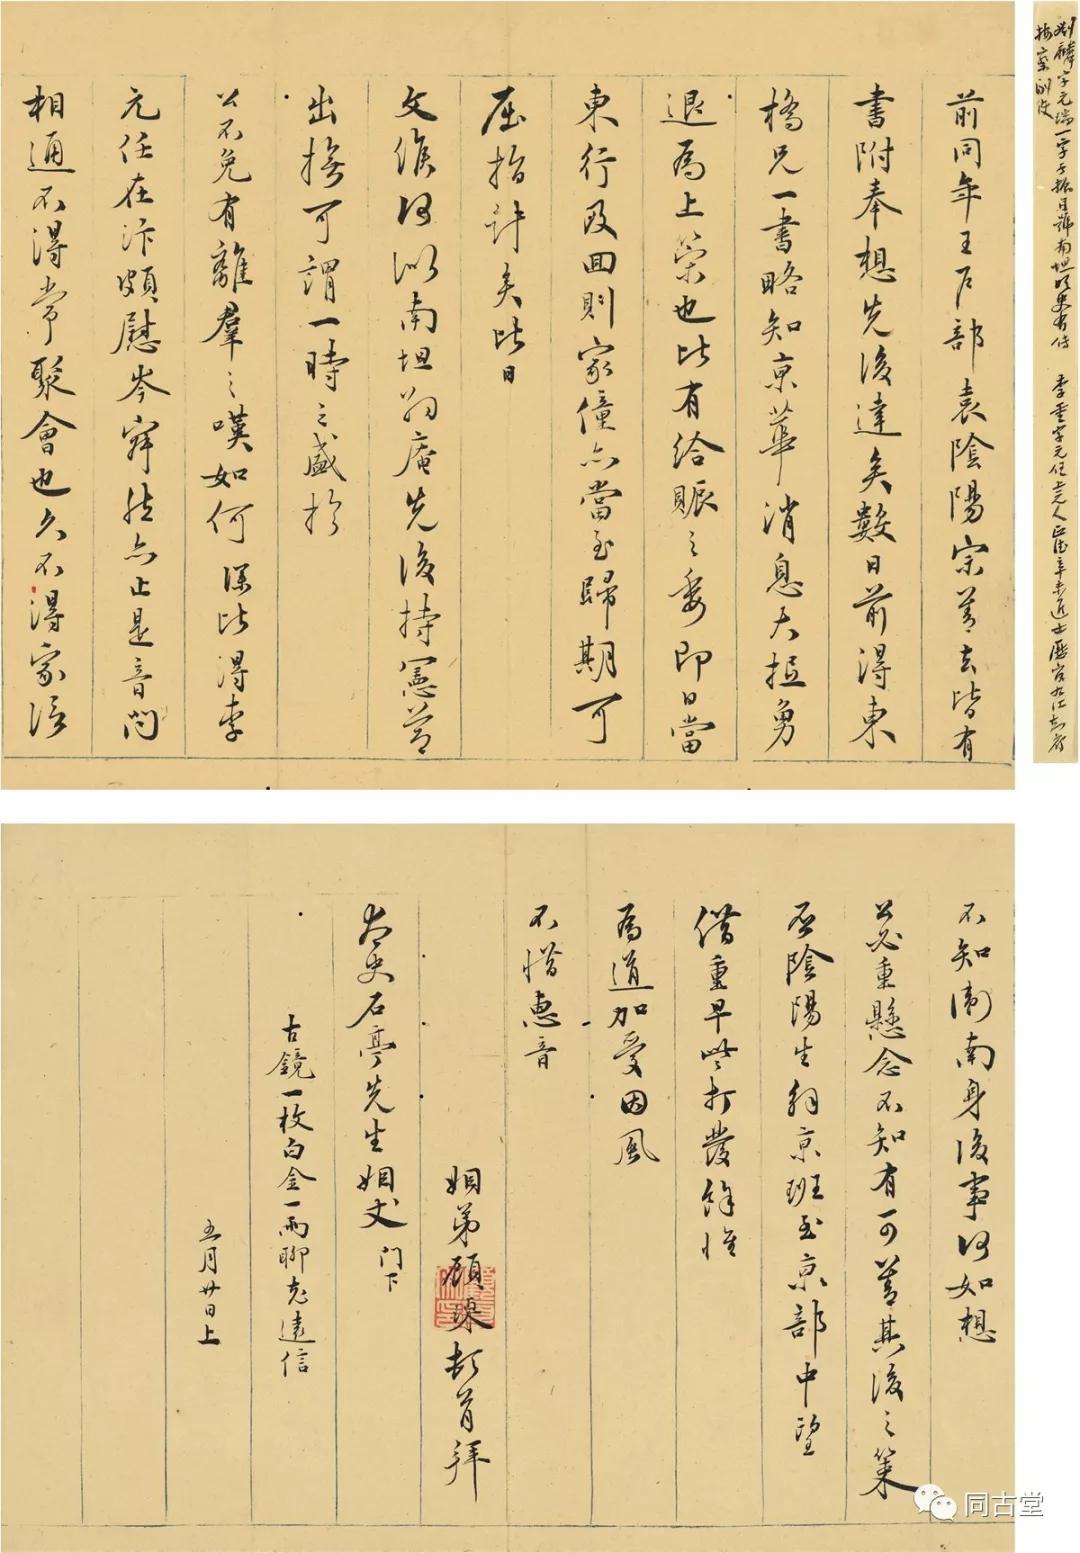 前同年王户部袁陰陽宗善去皆有
書附奉想先後達矣數日前得東
橋兄一書略知京華消息大抵勇
退為上策也此有給賑之委即日當
東行及回則家僮亦當至歸期可
屈指計矣此日
文候何似南坦翁庵先後持憲節
出撫可謂一時之盛於
公不免有離羣之嘆如何深此得李
元任在汴頗慰岑寂然亦止是音問
相通不得常聚會也久不得家信
不知衛南身後事何如想
公必重懸念不知有可善其後之策
否陰陽生解京班至京部中望
借重早些打發餘惟
為道加愛因風
不惜惠音
姻弟顧瑮頓首拜
太史石亭先生姻丈門下
古鏡一枚白金一兩聊充遠信
五月廿日上
劉麟字元瑞一字子振號南坦明史有傳
按察副使
李重字元任上元人正德辛未進士歷官九江知府
同古堂